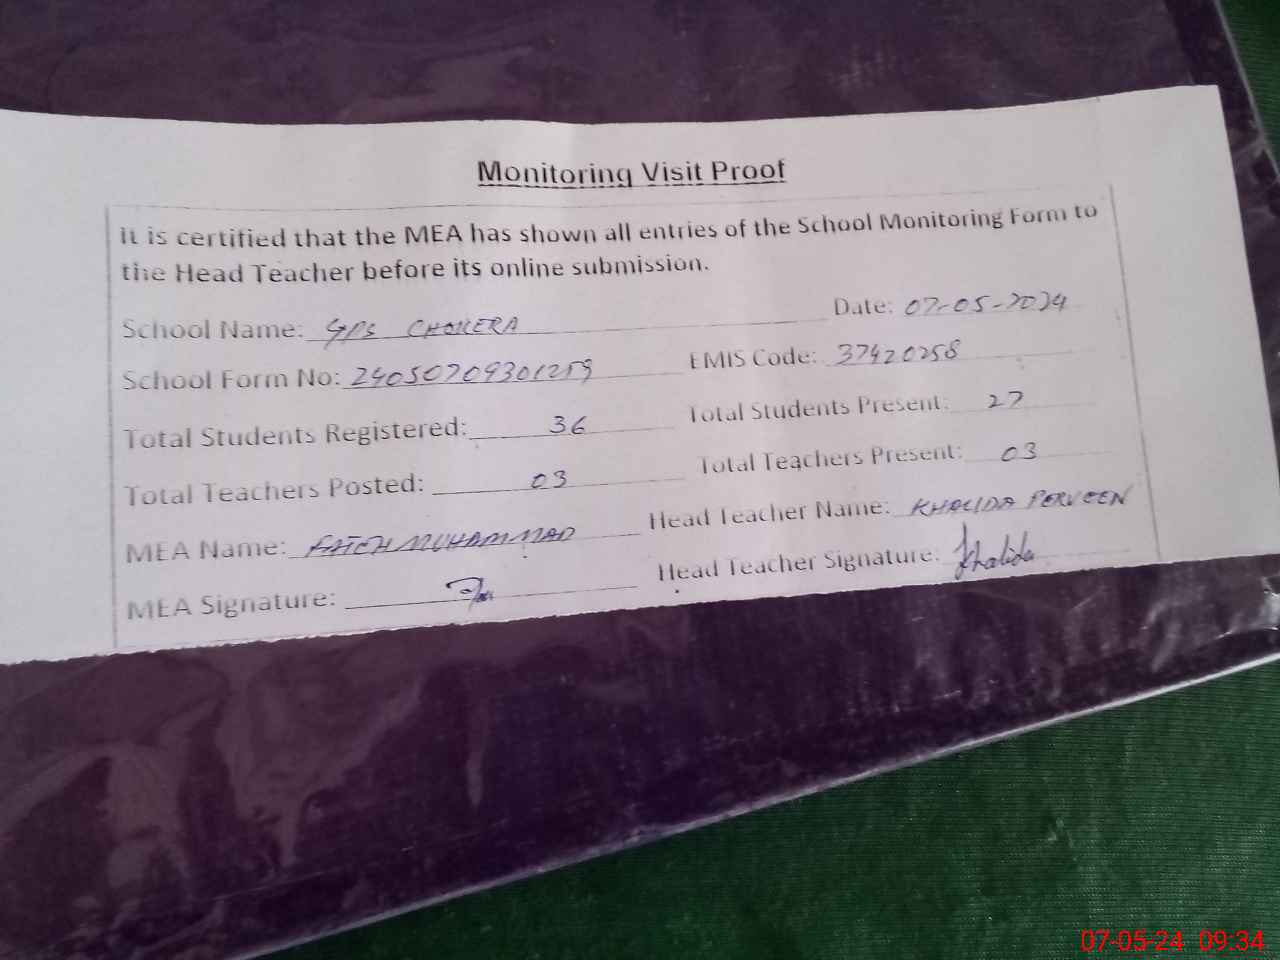 Monitoring Visit Proof
It is certified that the MEA has shown all entries of the School Monitoring Form to
the Head Teacher before its online submission.
School Name: GPS CHOKERA Date: 07-05-2024
School Form No: 24050709301259 EMIS Code: 37420258
Total Students Registered: 36 Total Students Present: 27
Total Teachers Posted: 03 Total Teachers Present: 03
MEA Name: FATEH MUHAMMAD Head Teacher Name: KHALIDA PERVEEN
MEA Signature: Head Teacher Signature: Khalida
07-05-24 09:34